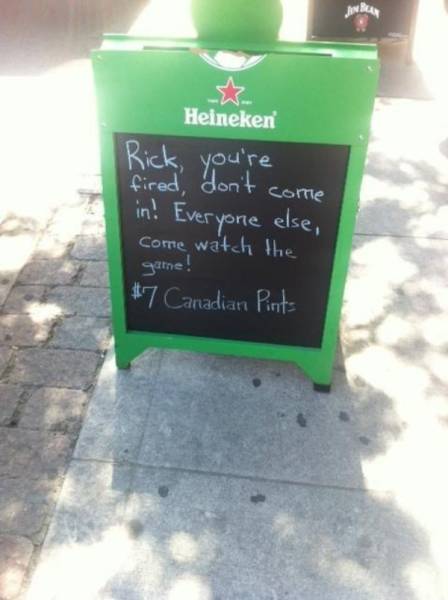 JIM BEAM
Heineken
Rick, you're
fired, don't come
in! Everyone else,
come watch the
game!
$7 Canadian Pints